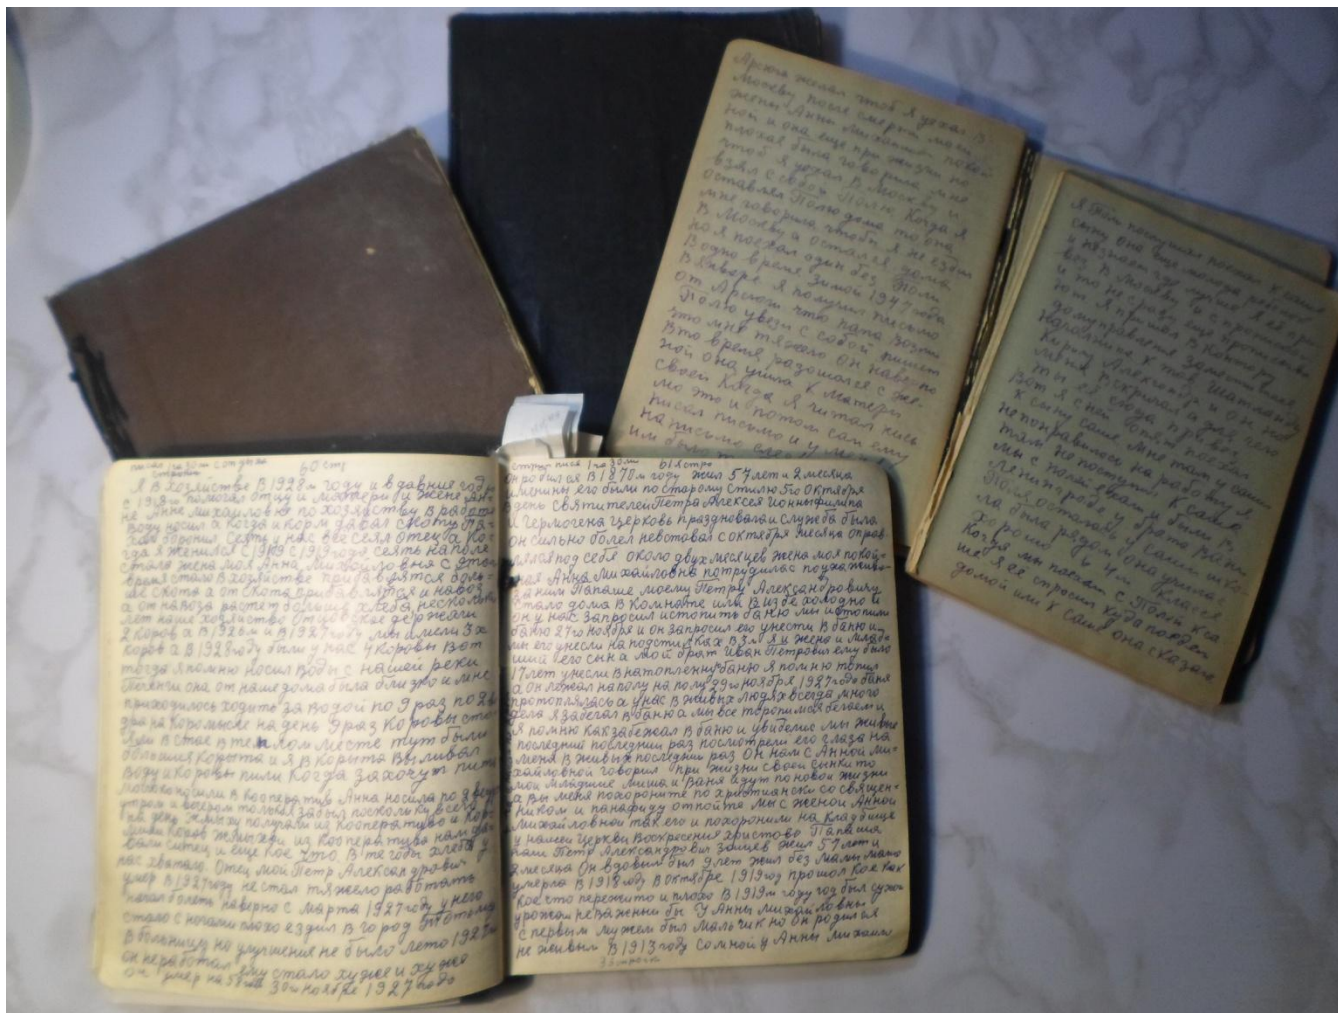 60 стр
Я в хозяйстве в 1928м году и в давние годы
с 1919м помогал отцу и матери и жене Ан-
не Михайловне по хозяйству в работе
воду носил а когда и корм давал скоту па-
хал боронил сеять у нас все сеял отец а ког-
да я женился с 1919 с 1919 года сеять на поле
стала жена моя Анна Михайловна с этого
время стало в хозяйстве прибавлятся боль-
ше скота а от скота прибавлятся и навоз
а от навоза растет больше хлеба несколько
лет наше хозяйство отцовское держали
2 коров а в 1926м и в 1927 году мы имели 3х
коров а в 1928 году были у нас 4 коровы вот
тогда я помню носил воды с нашей реки
она от наше дома была близко и мне
приходилось ходить за водой по 9 раз по 2 ве-
дра на коромысле на день 9 раз коровы сто-
яли в стае в теплом месте тут были
большия корыта и я в корыта выливал
воду и коровы пили когда захочут пить
молоко носили в кооператив Анна носила по ведру
утром и вечером только забыл поскольку всего
на день жмыху получали из кооператива и кор-
мили коров жмыхом из кооператива нам да-
вали ситец и еще кое что в те годы хлеба у
нас хватало. Отец мой Петр Александрович
умер в 1927 году не стал тяжело работать
начал болеть наверно с марта 1927 году у него
стало с ногами плохо ездил в город
в больницу но улучшения не было лето 1927м
он не работал ему стало хуже и хуже
он умер на 30го ноября 1927 года
61я стр
он родился в 1870м году жил 57 лет и 2 месяца
именины его были по старому стилю 5го октября
в день святителей Петра Алексея Ионны Филипа
и Гермогена церковь праздновала и служба была
он сильно болел невставал с октября месяца оправ-
лялся под себе около двух месяцев жена моя покой-
ная Анна Михайловна потрудилас поухажива-
за ним Папаше моему Петру Александровичу
стало дома в комнате или в избе холодно и
он у нас запросил истопить баню мы истопили
баню 27го ноября и он запросил его унести в баню и
мы его унесли на подстилках взял я и жена и млад-
ший его сын а мой брат Иван Петрович ему было
17 лет унесли в натопленну баню я помню топил
а он лежал на полу на полу 29го ноября 1927 года баня
протоплялась а у нас в живых людях всегда много
дела я забегал в баню а мы все торопимся бегаем и
я помню как забежал в баню и увиделис мы живые
последний последний раз посмотрели его глаза на
меня в живых последний раз Он нам с Анной Ми-
хайловной говорил при жизни своей сынки то
мои младшие Миша и Ваня идут по новой жизни
а вы меня похороните по христиански со священ-
ником и панафиду отпойте мы с женой Анной
Михайловной так его и похоронили на кладбище
у нашей церкви Воскресения христова Папаша
наш Петр Александрович Зайцев жил 57 лет и
2 месяца Он вдовым был 9 лет жил без мамы мама
умерла в 1918 году в октябре 1919 год прошол кое как
кое с то пережито и плохо в 1919м году год был сухой
урожай не важный бы У Анны Михайловны
с первым мужем был мальчик но он родился
не живым в 1913 году со мной у Анны Михайл
Арсюта желал чтоб я уехал в
Москву после смерти моей
жены Анны Михайлов покой-
ной и она еще при жизни по
плохая была говорила мне
чтоб я уехал в Москву и
взял с собой Полю когда я
оставлял Полю дома то она
мне говорила чтобы я не ездил
в Москву а остался дома
но я поехал один без Поли
Водно время зимой 1947 года
в январе я получил письмо
от Арсюты что папа возми
Полю увези с собой пишет
что мне тяжело он наверно
в то время разошолся с же-
ной она ушла к матери
своей когда я читал пись
мо это и потом сам ему
писал письмо и у меня
на письмо слезы
им было
Я Поли послушал поехал к Саше
сыну она еще молодой ребенок
и незнает где лучше я её вози
вез в Москву и с пропиской
и то не сразу еще прописыва
ют я пришол в контору
домуправления заместитель
начальника
Кириллу Александр и он на
меня вскричал а для чего
ты её сюда привез
Вот я с ней обоям поехал
к сыну Саше мне там у Саши
непонравилось на работу я
там не поступил к Саше
мы с Полей ехали и были в
Ленинграде у брата Вани
Поля осталась у Саши шко-
ла была рядом она училась
хорошо в 4м классе
Когда мы поехали с Полей к Са-
ше я её спросил куда поедем
домой или к Саше она сказала